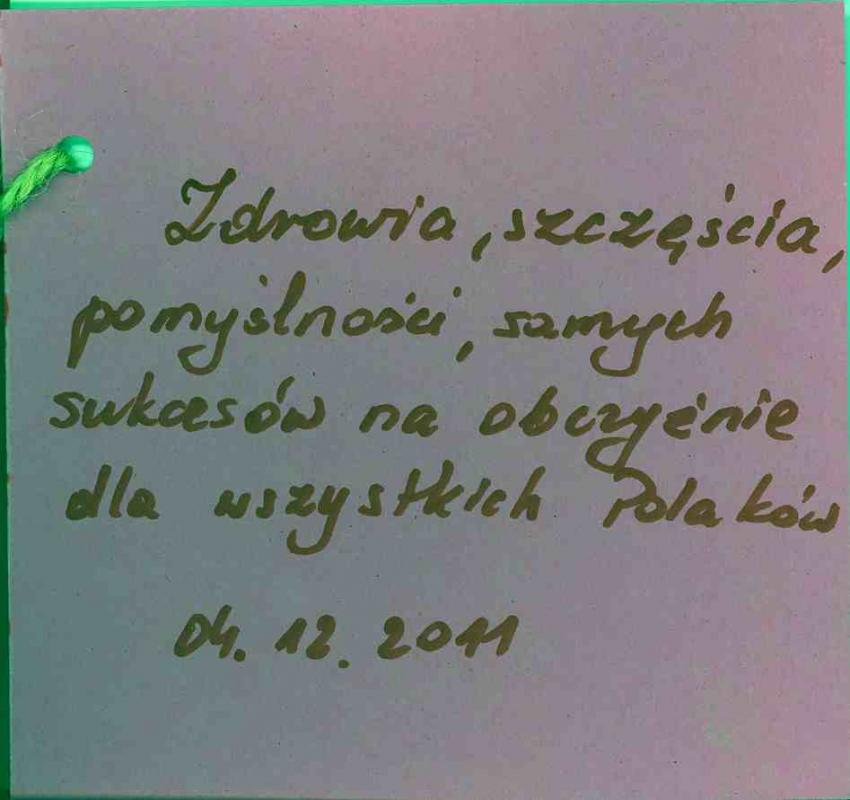 Zdrowia, szczęścia,
pomyślności, samych
sukcesów na obczyźnie
dla wszystkich Polaków
04. 12. 2011